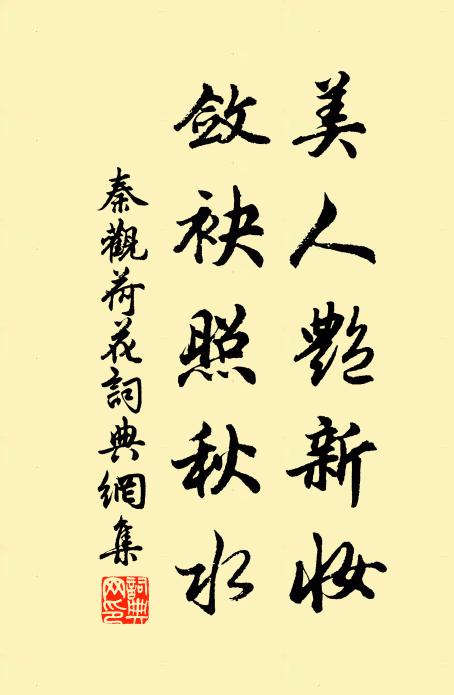 美人艷新妆
敛袂照秋水
秦觀荷花詞典網集
詞典网印